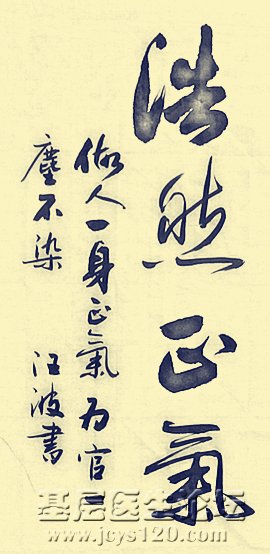 浩然正氣
做人一身正氣为官一
塵不染 汪波書
基层医生论坛
www.jcys120.com